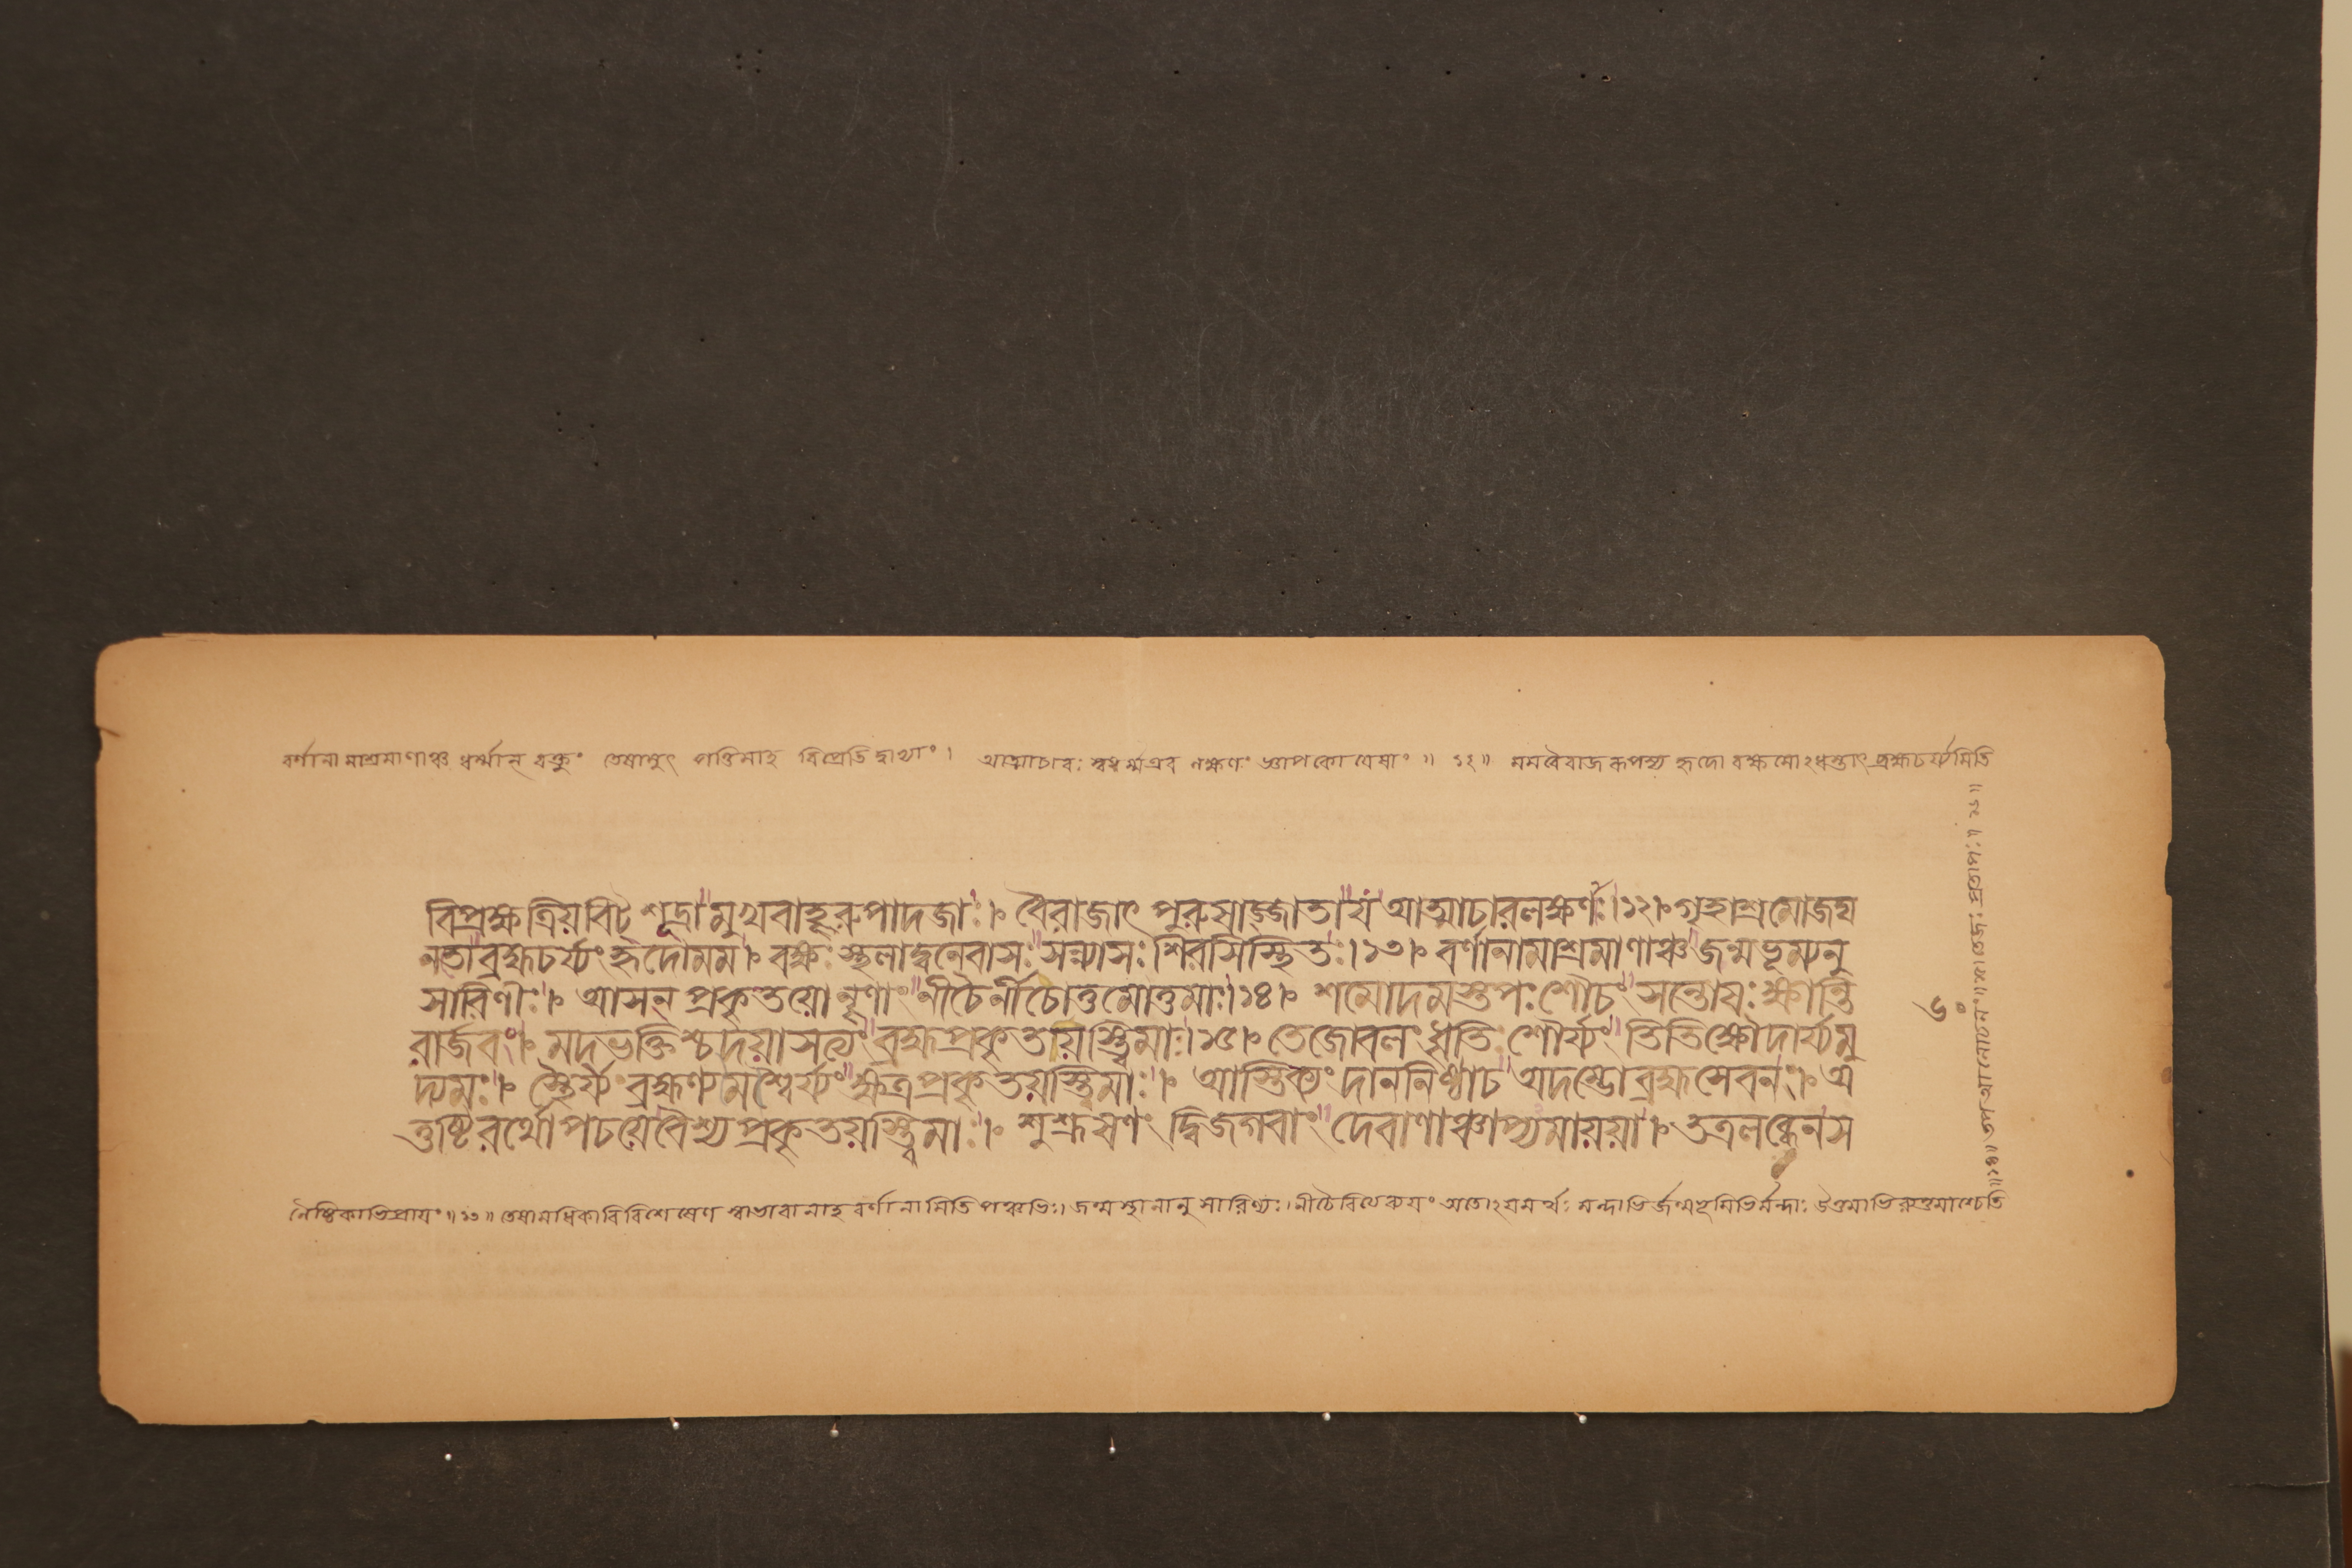 বর্ণানামাশ্রমাণাঞ্চ ধর্ম্মান্ বক্তুং তেষামুৎপত্তিমাহ বিপ্রেতিদ্বাভ্যাং। আত্মাচারঃ স্বধর্ম্মএব লক্ষণং জ্ঞাপকো যেষাং ॥ ১২ ॥ মমবৈরাজরূপস্য হৃদো বক্ষসোঽধস্তাৎ ব্রহ্মচর্য্যমিতি
বিপ্রক্ষত্রিয়বিট্শূদ্রা মুখবাহূরুপাদজাঃ। বৈরাজাৎ পুরুষাজ্জাতা য আত্মাচারলক্ষণাঃ।১২। গৃহাশ্রমোজঘ
নতো ব্রহ্মচর্য্যং হৃদোমম। বক্ষঃস্থলাদ্বনেবাসঃ সন্ন্যাসঃ শিরসিস্থিতঃ।১৩। বর্ণানামাশ্রমাণাঞ্চ জন্মভূম্যনু
সারিণীঃ। আসন্ প্রকৃতয়োনৃণাং নীচৈর্নীচোত্তমোত্তমাঃ।১৪। শমোদমস্তপঃশৌচং সন্তোষঃ ক্ষান্তি
রার্জবং। মদভক্তিশ্চদয়াসত্যং ব্রহ্মপ্রকৃতয়স্ত্বিমাঃ।১৫। তেজোবলং ধৃতিঃ শৌর্য্যং তিতিক্ষৌদার্য্যমু
দ্যমঃ। স্থৈর্য্যং ব্রহ্মণ্যমৈশ্বর্য্যং ক্ষত্রপ্রকৃতয়স্ত্বিমাঃ। আস্তিক্যং দাননিষ্ঠাচ অদম্ভোব্রহ্মসেবনং। অ
তুষ্টিরর্থোপচয়ে বৈশ্যপ্রকৃতয়স্ত্বিমাঃ। শুশ্রূষণং দ্বিজগবাং দেবাণাঞ্চাপ্যমায়য়া। তত্রলব্ধেনস
৬০
নৈষ্ঠিকাভিপ্রায়ং ॥১৩॥ তেষামধিকারিবিশেষেণ স্বভাবানাহ বর্ণানামিতি পঞ্চভিঃ। জন্মস্থানানুসারিণ্যঃ। নীচৈরিত্যেকয়ং অতোঽয়মর্থঃ মন্দাভির্জন্মভূমিভির্মন্দাঃ উত্তমাভিরুত্তমাশ্চেতি
॥১৪॥ আলোচনং তেজঃ প্রতাপঃ ॥